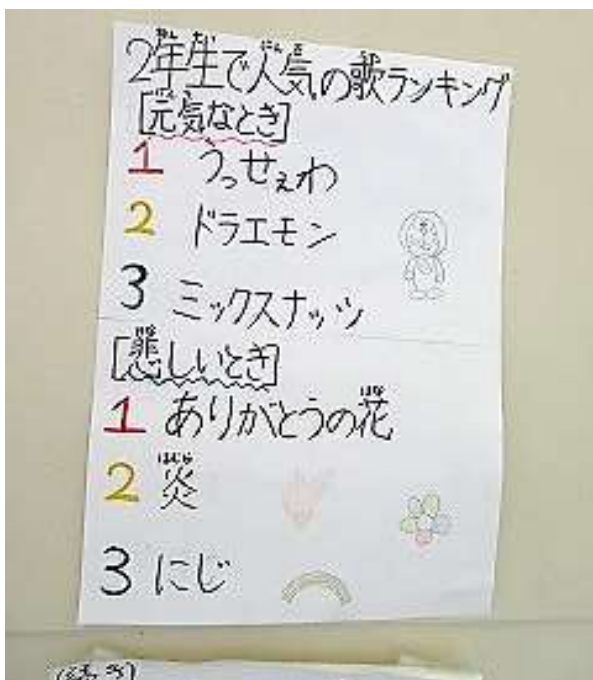 2年生で人気の歌ランキング
[元気なとき]
1 うっせぇわ
2 ドラエモン
3 ミックスナッツ
[悲しいとき]
1 ありがとうの花
2 炎
3 にじ